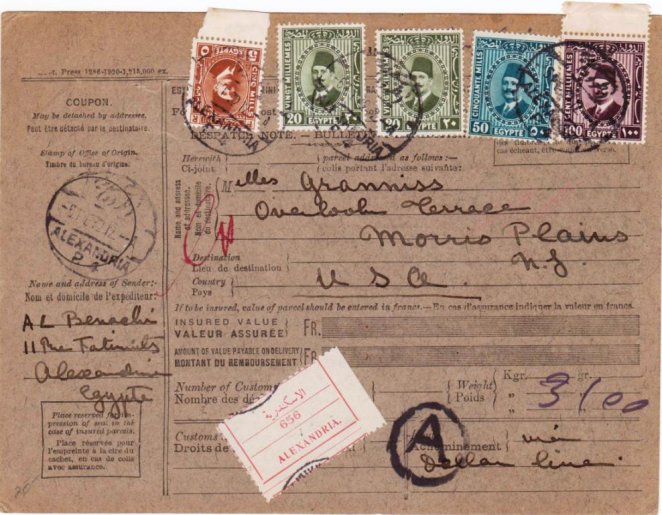 Press 1286-1930-1,215,000 ex.
COUPON.
May be detached by addressee.
Peut être détaché par le destinataire.
Stamp of Office of Origin.
Timbre du bureau d'origine.
ALEXANDRIA
P. 4
Name and address of Sender:
Nom et domicile de l'expéditeur:
A L Benachi
11 Rue
Alexandrie
Egypte
Place reserved for im-
pression of seal in the
case of insured parcels.
Place réservée pour
l'empreinte à la cire du
cachet, en cas de colis
avec assurance.
EGYPTE
ALEXANDRIA
VINGT MILLIEMES
20
EGYPTE
٢٠
VINGT MILLIEMES
20
EGYPTE
٢٠
ALEXANDRIA
CINQUANTE MILLS
50
EGYPTE
٥٠
CENT MILLIEMES
100
EGYPTE
١٠٠
DESPATCH NOTE. — BULLETIN
Herewith
Ci-joint
parcel addressed as follows:—
colis portant l'adresse suivante:
Name and address
of addressee.
Nom et domicile
du destinataire.
Melles Granniss
Overlook Terrace
Morris Plains
N.J.
Destination
Lieu de destination
Country
Pays
U S A.
If to be insured, value of parcel should be entered in francs.—En cas d'assurance indiquer la valeur en francs.
INSURED VALUE
VALEUR ASSURÉE
FR.
AMOUNT OF VALUE PAYABLE ON DELIVERY
MONTANT DU REMBOURSEMENT
FR.
Number of Customs
Nombre des
Weight
Poids
Kgr.
gr.
3/00
Customs
Droits de
الاسكندرية
656
ALEXANDRIA.
A
Acheminement
via
Dollar line.